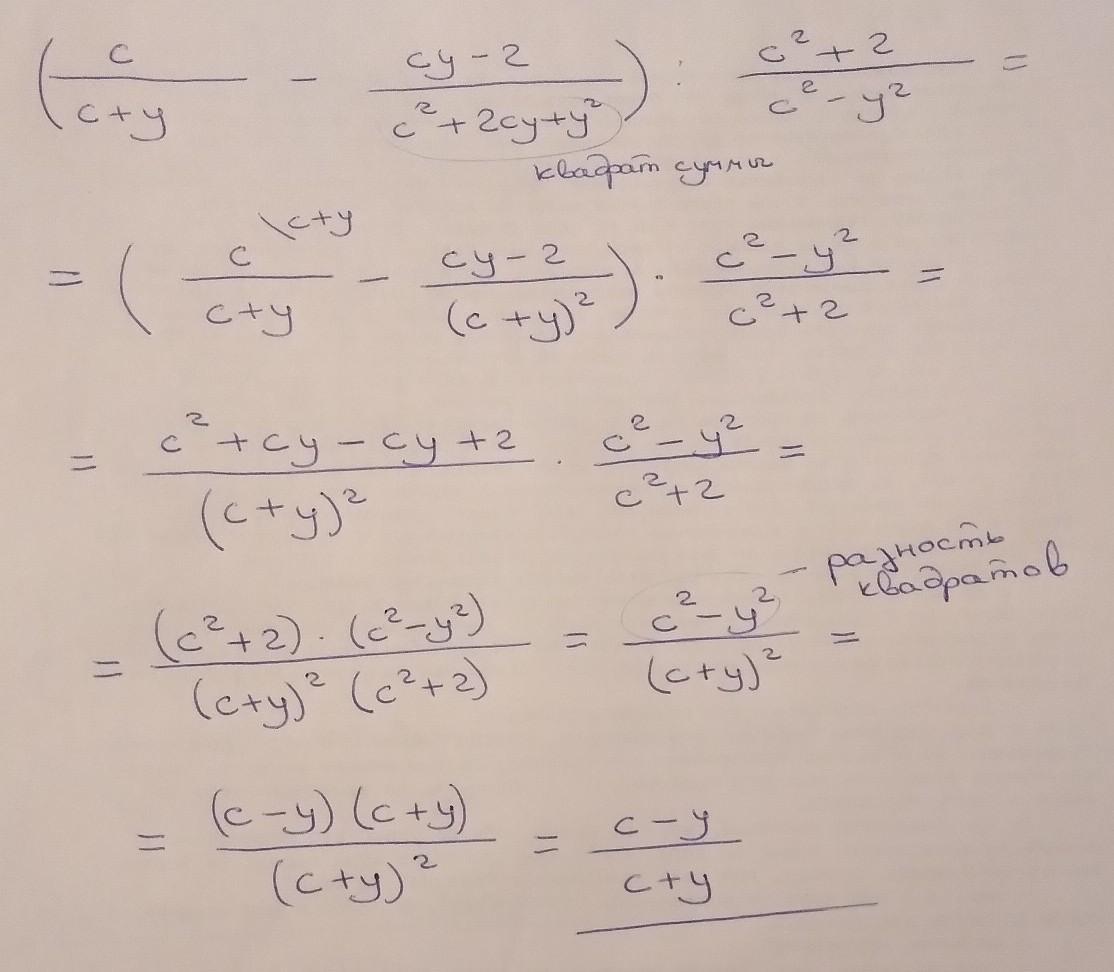 (c/(c+y) − (cy−2)/(c²+2cy+y²)) : (c²+2)/(c²−y²) =
квадрат суммы
= (c\c+y/(c+y) − (cy−2)/(c+y)²) · (c²−y²)/(c²+2) =
= (c²+cy−cy+2)/(c+y)² · (c²−y²)/(c²+2) =
= (c²+2)·(c²−y²)/(c+y)²(c²+2) = (c²−y²)/(c+y)² =
– разность
квадратов
= (c−y)(c+y)/(c+y)² = (c−y)/(c+y)